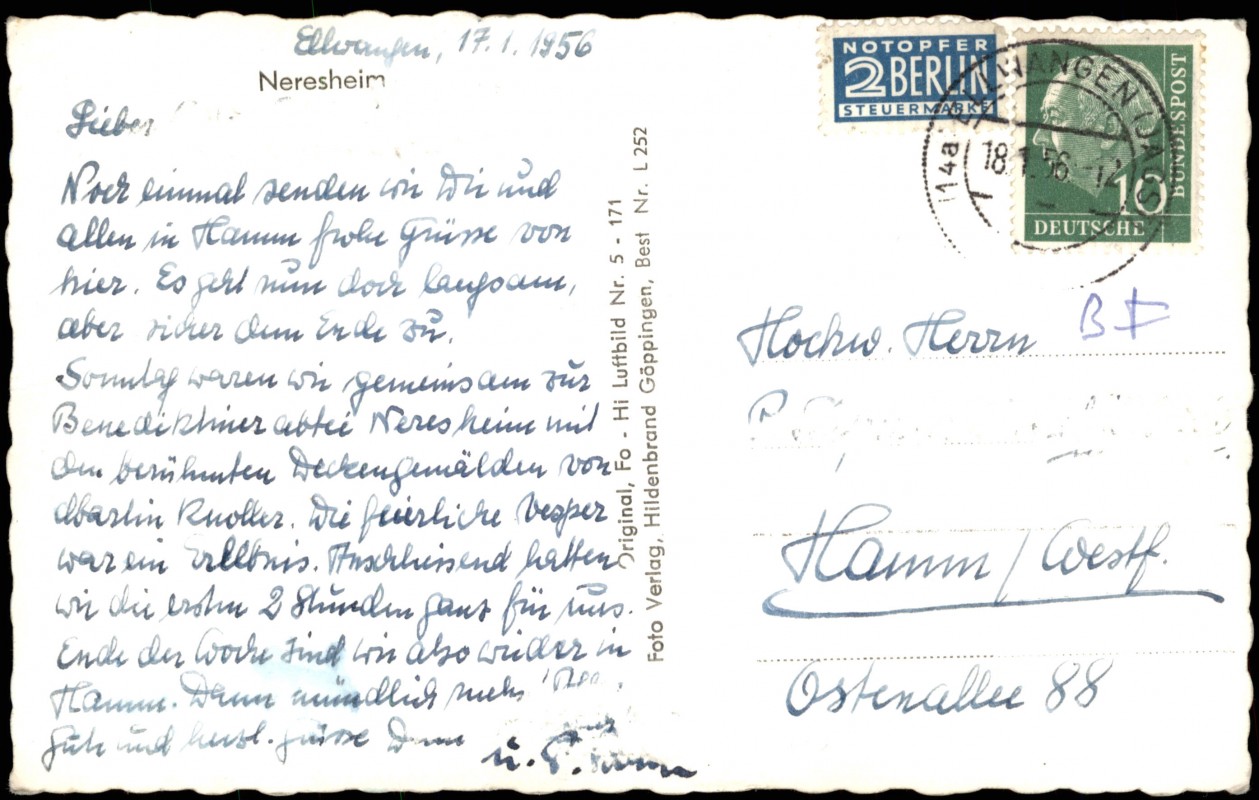 Ellwangen, 17.1.1956
Neresheim
Lieber
Noch einmal senden wir Dir und
allen in Hamm frohe Grüsse von
hier. Es geht nun doch langsam,
aber sicher dem Ende zu.
Sonntag waren wir gemeinsam zur
Benediktinerabtei Neresheim mit
den berühmten Deckengemälden von
Martin Knoller. Die feierliche Vesper
war ein Erlebnis. Anschliessend hatten
wir die ersten 2 Stunden ganz für uns.
Ende der Woche sind wir also wieder in
Hamm. Dann mündlich mehr
Gute und herzl. Grüsse Dein
u.
Original, Fo - Hi Luftbild Nr. 5 - 171
Foto Verlag, Hildenbrand Göppingen, Best Nr. L 252
NOTOPFER
2 BERLIN
STEUERMARKE
DEUTSCHE
BUNDESPOST
10
(14a) ELLWANGEN (JAGST)
18.1.56 -12
B I
Hochw. Herrn
Hamm / Westf.
Ostenallee 88